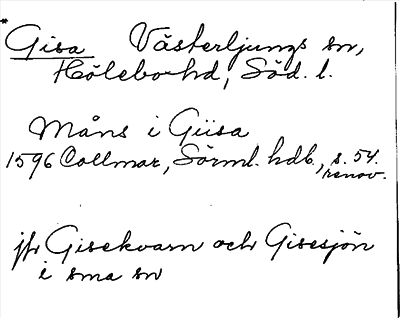 *
Gisa Västerljungs sn,
Hölebo hd, Söd. l.
Måns i Giisa
1596 Collmar, Sörml. hdb., s. 54.
renov.
jfr Gisekvarn och Gisesjön
i sma sn